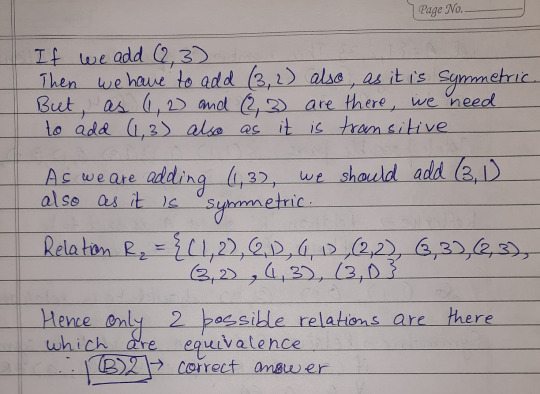 Page No.
If we add (2,3)
Then we have to add (3,2) also, as it is symmetric.
But, as (1,2) and (2,3) are there, we need
to add (1,3) also as it is transitive
As we are adding (1,3), we should add (3,1)
also as it is symmetric.
Relation R₂ = {(1,2), (2,1), (1,1), (2,2), (3,3), (2,3),
(3,2), (1,3), (3,1)}
Hence only 2 possible relations are there
which are equivalence
∴ (B) 2 → correct answer